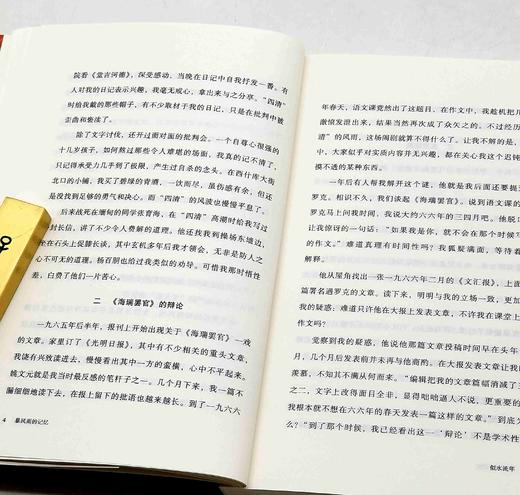 院看《堂吉诃德》,深受感动,当晚在日记中自我抒发一番。有
人对我的日记表示兴趣,我毫无戒心,拿来与之分享。“四清”
时给我戴的那些帽子,有不少取材于我的日记,只是在批判中被
歪曲和亵渎了。
除了文字讨伐,还开过面对面的批判会。一个自尊心很强的
十几岁孩子,如何熬过那些令人难堪的场面,我真的记不清了,
只记得承受力几乎到了极限,产生过自杀的念头。在西什库大街
北口的小铺,我买了碧绿的青酒,一饮而尽,虽伤感有余,但还
是没找到足够的勇气和决心。而“四清”的风波也慢慢平息了。
后来战死在缅甸的同学张育海,在“四清”高潮时给我写过
一封长信,讲了不少令人费解的道理。他还找我到操场东墙边,
坐在石头上促膝长谈,其中玄机多年后我才领会,无非是防人之
心不可无的道理。杨百朋也给过我类似的劝导。可惜我那时悟性
差,白费了他们一片苦心。
二 《海瑞罢官》的辩论
一九六五年后半年,报刊上开始出现关于《海瑞罢官》一戏
的文章。家里订了《光明日报》,其中有不少相关的重头文章,
我饶有兴致读进去,慢慢看出其中一方的蛮横,心中不平起来。
姚文元就是我当时最反感的笔杆子之一。几个月下来,我一篇不
漏细细地读下去,在报上留下的批语也越来越长。到了一九六六
4 暴风雨的记忆
年春天,语文课竟然出了这题目,在作文中,我趁机把几
激愤发泄出来,结果当然再次成了众矢之的。不过经历
清”的风雨,这场闹剧就算不得什么了。让我不解的是,
中,大家似乎对实质内容并无兴趣,都在关心我这个迟钝
摸不透的某种东西。
一年后有人帮我解开了这个谜。他就是我后面还要提
罗克。相识不久,我们谈起《海瑞罢官》,说到语文课的
罗克马上问我时间,我说大约六六年的三四月吧。他脱口
让我惊讶的一句话:“如果我是你,就不会在那个时候写
的作文。”难道真理有时间性吗?我狐疑满面,等待着
解释。
他从屋角找出一张一九六六年二月的《文汇报》,上
篇署名遇罗克的文章。读下来,明明与我的立场一致,更加
我的疑惑:难道只许他在大报上发表文章,不许我在课堂上
作文吗?
觉察到我的疑惑,他说他那篇文章投稿时间早在头年
月,几个月后发表前并未再与他商酌。“在大报发表文章让我
羡慕,不知其不满从何而来。“编辑把我的文章篇幅消减了
之二,文字上改得面目全非,显得咄咄逼人不说,更重要的
我根本就不想在六六年的春天发表一篇这样的文章。”
之?”到了那个时候,我已经看出这一‘辩论’不是学术性
似水流年